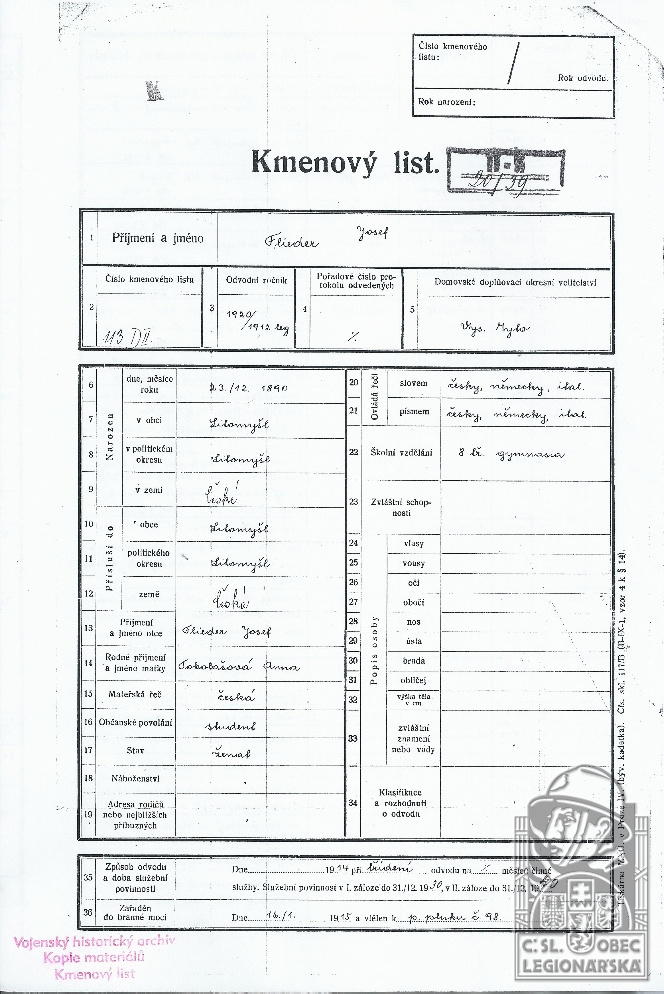 Číslo kmenového
listu:
/
Rok odvodu.
Rok narození:
Kmenový list.
20/39
1 Příjmení a jméno Flieder Josef
Číslo kmenového listu Odvodní ročník Pořadové číslo pro-
tokolu odvedených Domovské doplňovací okresní velitelství
2 113 3 1920/
/1912 leg 4 /. 5 Vys. Mýto
6 Narozen dne, měsíce
roku 23./12. 1890
7 v obci Litomyšl
8 v politickém
okresu Litomyšl
9 v zemi České
10 Přísluší do obce Litomyšl
11 politického
okresu Litomyšl
12 země České
13 Příjmení
a jméno otce Flieder Josef
14 Rodné příjmení
a jméno matky Anna
15 Mateřská řeč česká
16 Občanské povolání student
17 Stav ženat
18 Náboženství
19 Adresa rodičů
nebo nejbližších
příbuzných
20 Ovládá řeči slovem česky, německy, ital.
21 písmem česky, německy, ital.
22 Školní vzdělání 8 tř. gymnasia
23 Zvláštní schop-
nosti
Popis osoby
24 vlasy
25 vousy
26 oči
27 obočí
28 nos
29 ústa
30 brada
31 obličej
32 výška těla
v cm
33 zvláštní
znamení
nebo vady
34 Klasifikace
a rozhodnutí
o odvodu
35 Způsob odvodu
a doba služební
povinnosti Dne 1914 při třídění odvodu na / měsíců činné
služby. Služební povinnost v I. záloze do 31./12. 1930, v II. záloze do 31./12. 1940
36 Zařaděn
do branné moci Dne 16./1. 1915 a vtělen k p. pluku č 98.
Vojenský historický archiv
Kopie materiálů
Kmenový list
Č.SL. OBEC
LEGIONÁŘSKÁ